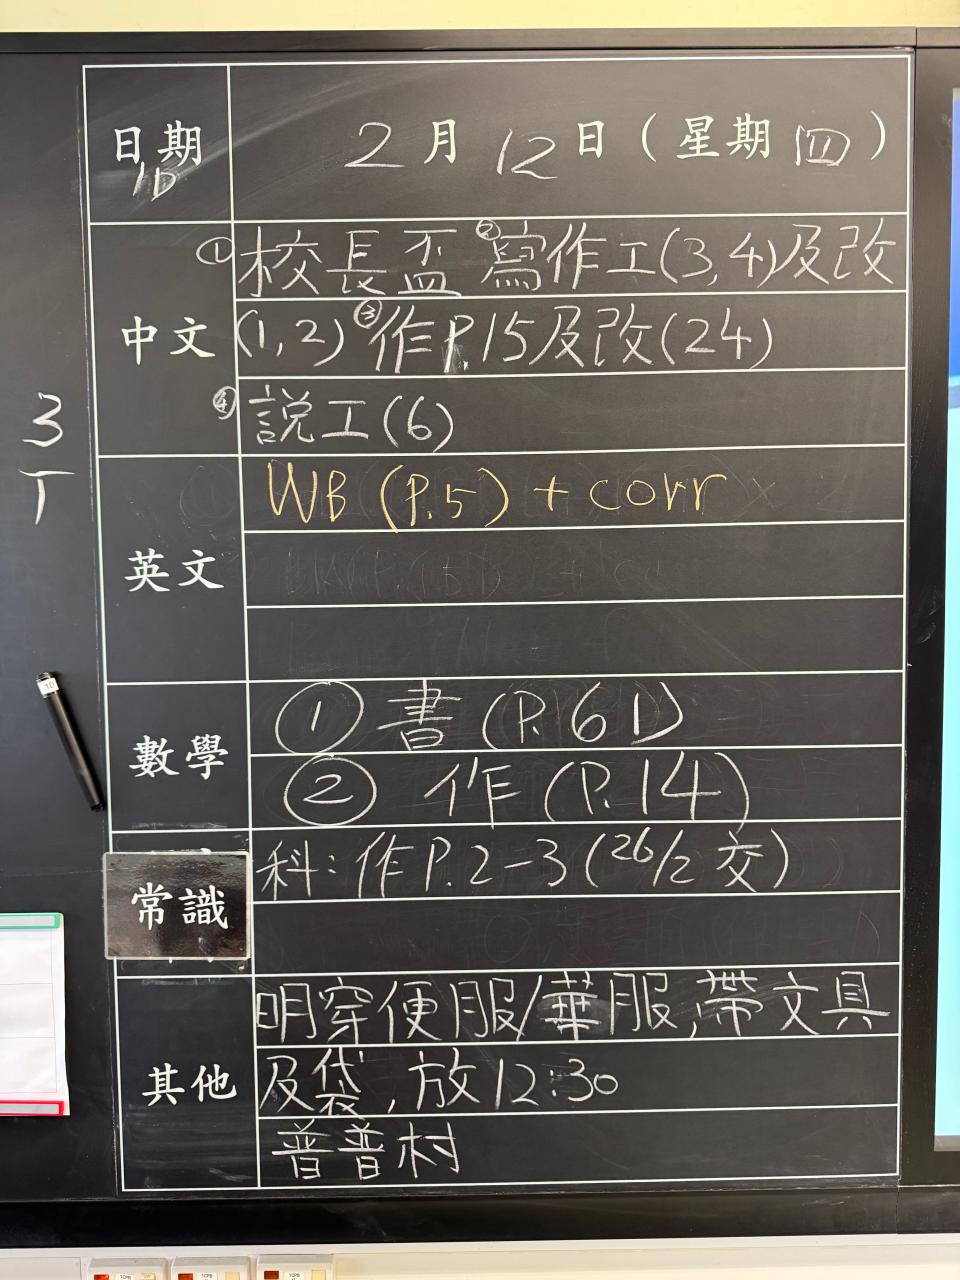 日期 2月12日(星期四)
1D
中文 ①校長盃 ②寫作工(3,4)及改
(1,2) ③作P.15及改(24)
④說工(6)
3
T
英文 WB (P.5) + corr
數學 ① 書 (P.61)
② 作 (P.14)
常識 科:作P.2-3(26/2交)
其他 明穿便服/華服,帶文具
及袋,放12:30
普普村
1D